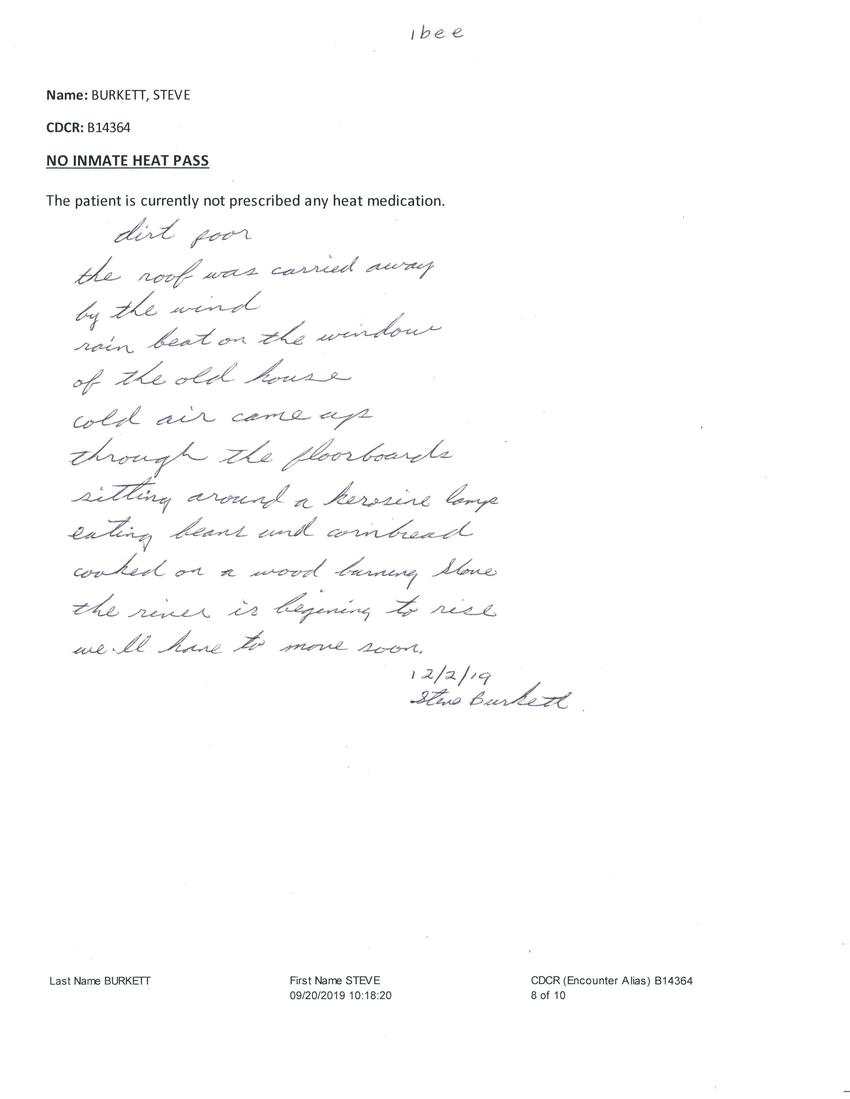 ibee
Name: BURKETT, STEVE
CDCR: B14364
NO INMATE HEAT PASS
The patient is currently not prescribed any heat medication.
dirt poor
the roof was carried away
by the wind
rain beat on the window
of the old house
cold air came up
through the floorboards
sitting around a kerosine lamp
eating beans and cornbread
cooked on a wood burning stove
the river is begining to rise
we'll have to move soon.
12/2/19
Steve Burkett
Last Name BURKETT First Name STEVE CDCR (Encounter Alias) B14364
09/20/2019 10:18:20 8 of 10